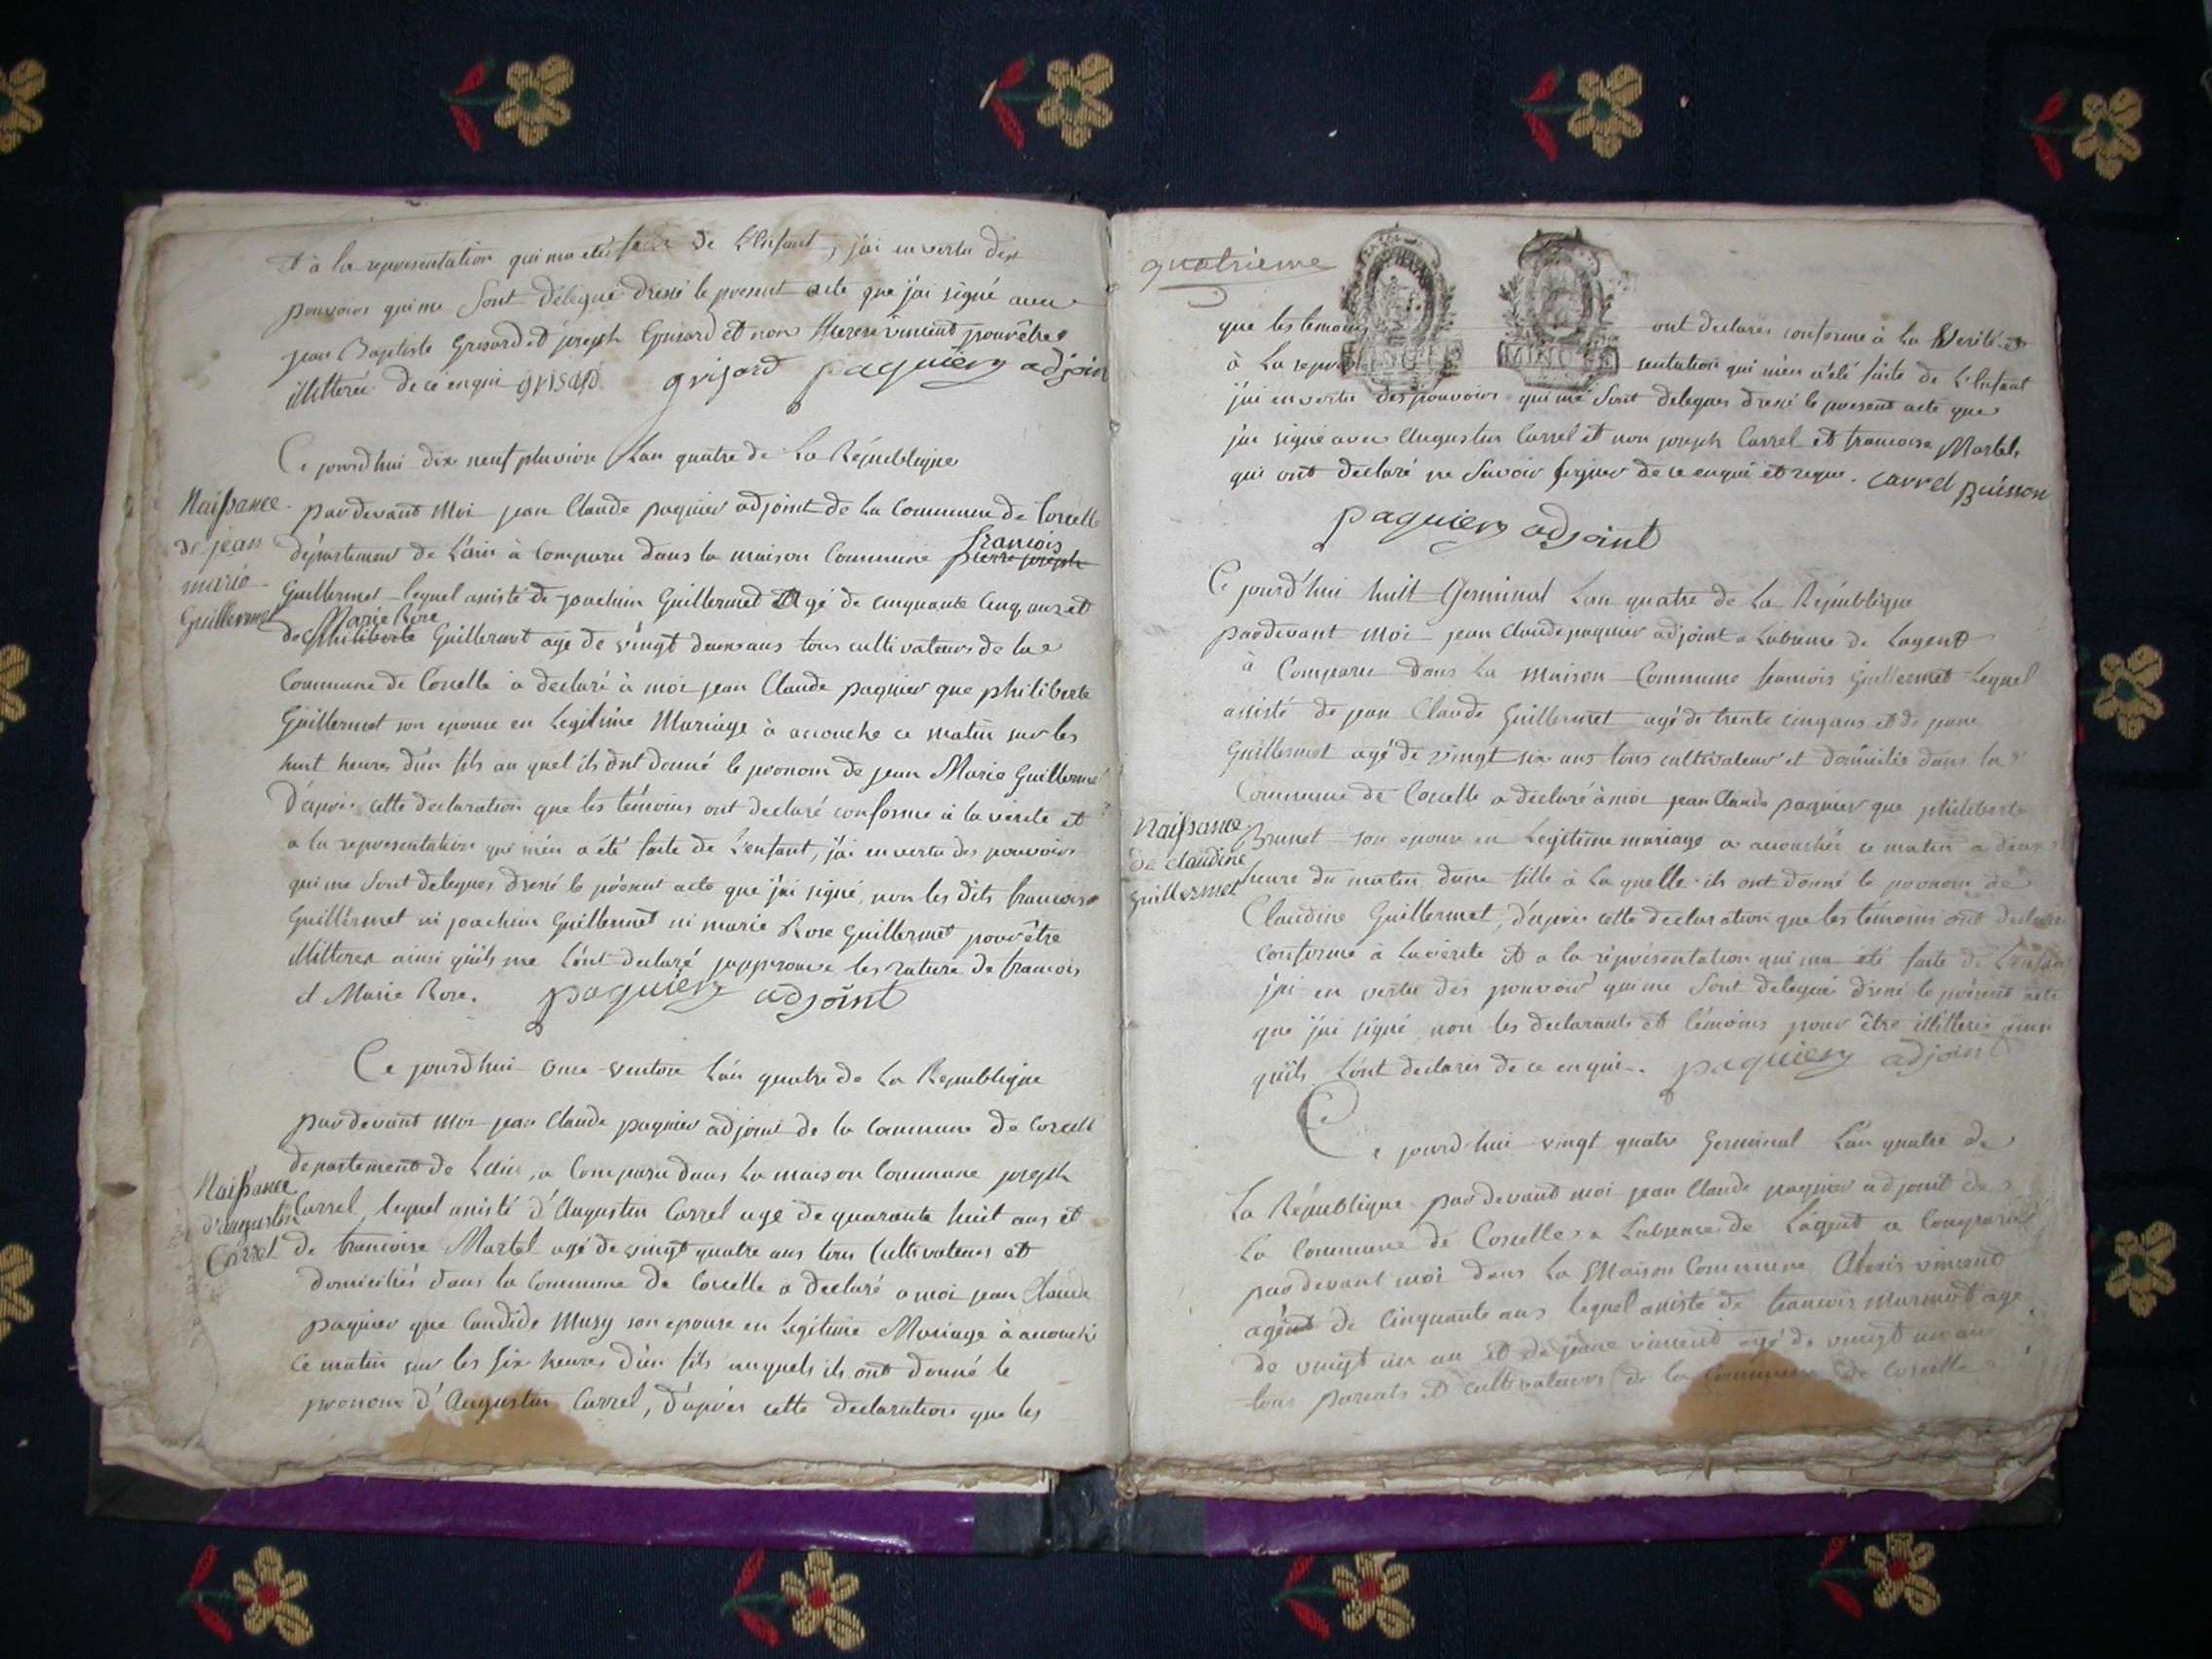 et à la representation qui ma eté faite de L'Enfant, j'ai en vertu des
pouvoirs qui me sont délegué dressé le present acte que j'ai signé avec
jean Baptiste Grisard et joseph Grisard et non vincent pour être
illitteré de ce enqui grisard grisard paquier adjoint
Ce jourd'hui dix neuf pluviose Lan quatre de La République
pardevant Moi jean Claude paquier adjoint de La Commune de Corcelle
Naissance de jean marie Guillermet
département de L'ain à comparu dans la maison Commune pierre joseph françois
Guillermet lequel assisté de joachim Guillermet Agé de cinquante cinq ans et
de philiberte Marie Rose Guillermet agé de vingt deux ans tous cultivateurs de la
Commune de Corcelle a declaré à moi jean Claude paquier que philiberte
Guillermet son epouse en Legitime Mariage à accouche ce matin sur les
huit heures d'un fils au quel ils ont donné le pronom de jean Marie Guillermet
D'après cette declaration que les témoins ont declaré conforme à la vérite et
a la representation qui m'en a été faite de L'enfant, j'ai en vertu des pouvoirs
qui me sont delegues dressé le présent acte que j'ai signé, non les dits francois
Guillermet ni joachim Guillermet ni marie Rose Guillermet pour être
illitteres ainsi qu'ils me L'ont declaré japprouve les rature de francois
et Marie Rose. paquier adjoint
Ce jourd'hui onze ventose L'an quatre de La Republique
pardevant Moi jean Claude paquier adjoint de la Commune de Corcelle
departement de Lain, a Comparu dans La maison Commune joseph
Naissance d'augustin Carrel
Carrel, lequel assisté d'Augustin Carrel agé de quarante huit ans et
de francoise Martel agé de vingt quatre ans tous Cultivateurs et
domiciliés dans la Commune de Corcelle a declaré a moi jean Claude
paquier que Candide Musy son epouse en Legitime Mariage à accouché
ce matin sur les six heures d'un fils auquels ils ont donné le
pronom d'Augustin Carrel, d'après cette declaration que les
quatrieme
que les temoins ont declarés conforme à La Verité et
à La repre sentation qui m'en a été faite de L'Enfant
MINUTE MINUTE
j'ai en vertu des pouvoirs qui me sont delegues dressé le present acte que
j'ai signé avec Augustin Carrel et non joseph Carrel et francoise Martel
qui ont declaré ne savoir signer de ce enqui et requi. Carrel Buisson
paquier adjoint
Ce jourd'hui huit Germinal Lan quatre de La République
pardevant Moi jean Claude paquier adjoint a Labsence de Lagent
à Comparu dans La maison Commune francois Guillermet Lequel
assisté de jean Claude Guillermet agé de trente cinq ans et de
Guillermet agé de vingt six ans tous cultivateur et domicilié dans la
Commune de Corcelle a declaré à moi jean Claude paquier que philiberte
Naissance de claudine Guillermet
Brunet son epouse en Legitime mariage a accouchée ce matin a deux
heure du matin dune fille à La quelle ils ont donné le pronom de
Claudine Guillermet, d'après cette declaration que les témoins ont declaré
conforme à La vérite et a la représentation qui ma été faite de L'enfant
j'ai en vertu des pouvoir qui me sont delegué dressé le présent acte
que j'ai signé, non les declarants et témoins pour être illitteré ainsi
qu'ils L'ont declarés de ce enqui. paquier adjoint
Ce jourd'hui vingt quatre Germinal L'an quatre de
La République pardevant moi jean Claude paquier adjoint de
La Commune de Corcelle a Labsence de Lagent a Comparu
pardevant moi dans La Maison Commune Alexis vincent
agé de Cinquante ans lequel assisté de francois marmet agé
de vingt un an et de vincent agé de vingt un an
tous parents et cultivateurs de la Commune de Corcelle